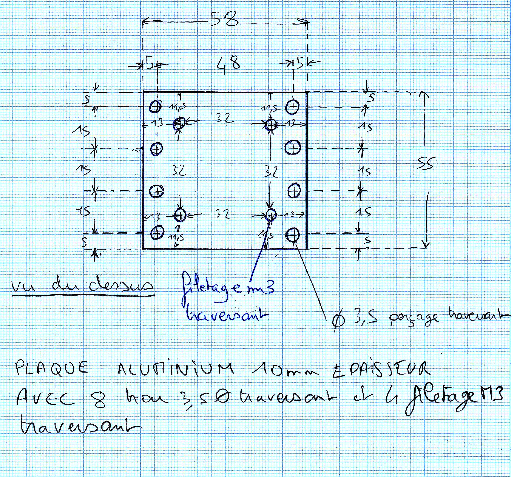 58
5 48 5
5 11,5 11,5 5
15 13 32 13 15
15 32 32 55 15
15 13 32 13 15
5 11,5 11,5 5
vu du dessus
filetage m3
traversant
Ø 3,5 perçage traversant
PLAQUE ALUMINIUM 10mm EPAISSEUR
AVEC 8 trou 3,5 Ø traversant et 4 filetage M3
traversant